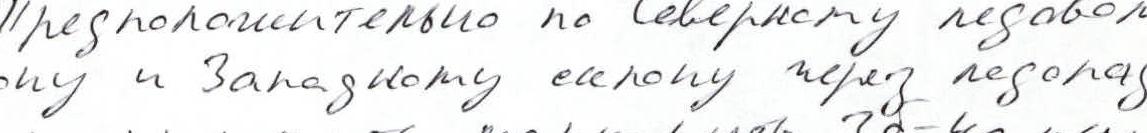 Предположительно по Северному ледовом
ону и Западному склону через ледопад